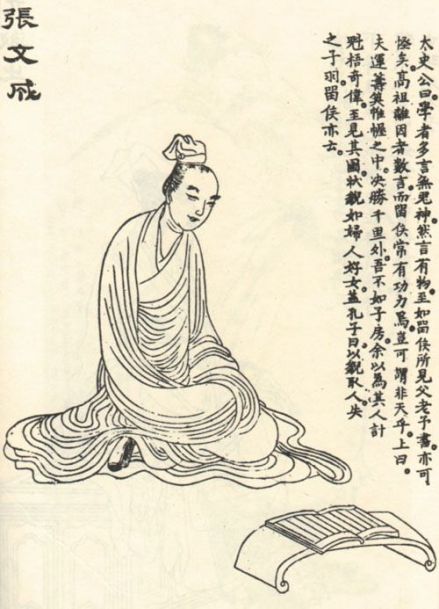 太史公曰。學者多言無鬼神。然言有物。至如留侯所見父老予書。亦可
怪矣。高祖離困者數言。而留侯常有功力焉。豈可謂非天乎。上曰。
夫運籌筭帷幄之中。決勝千里外。吾不如子房。余以為其人計
魁梧奇偉。至見其圖。狀貌如婦人好女。蓋孔子曰。以貌取人。失
之子羽。留侯亦云。
張文成